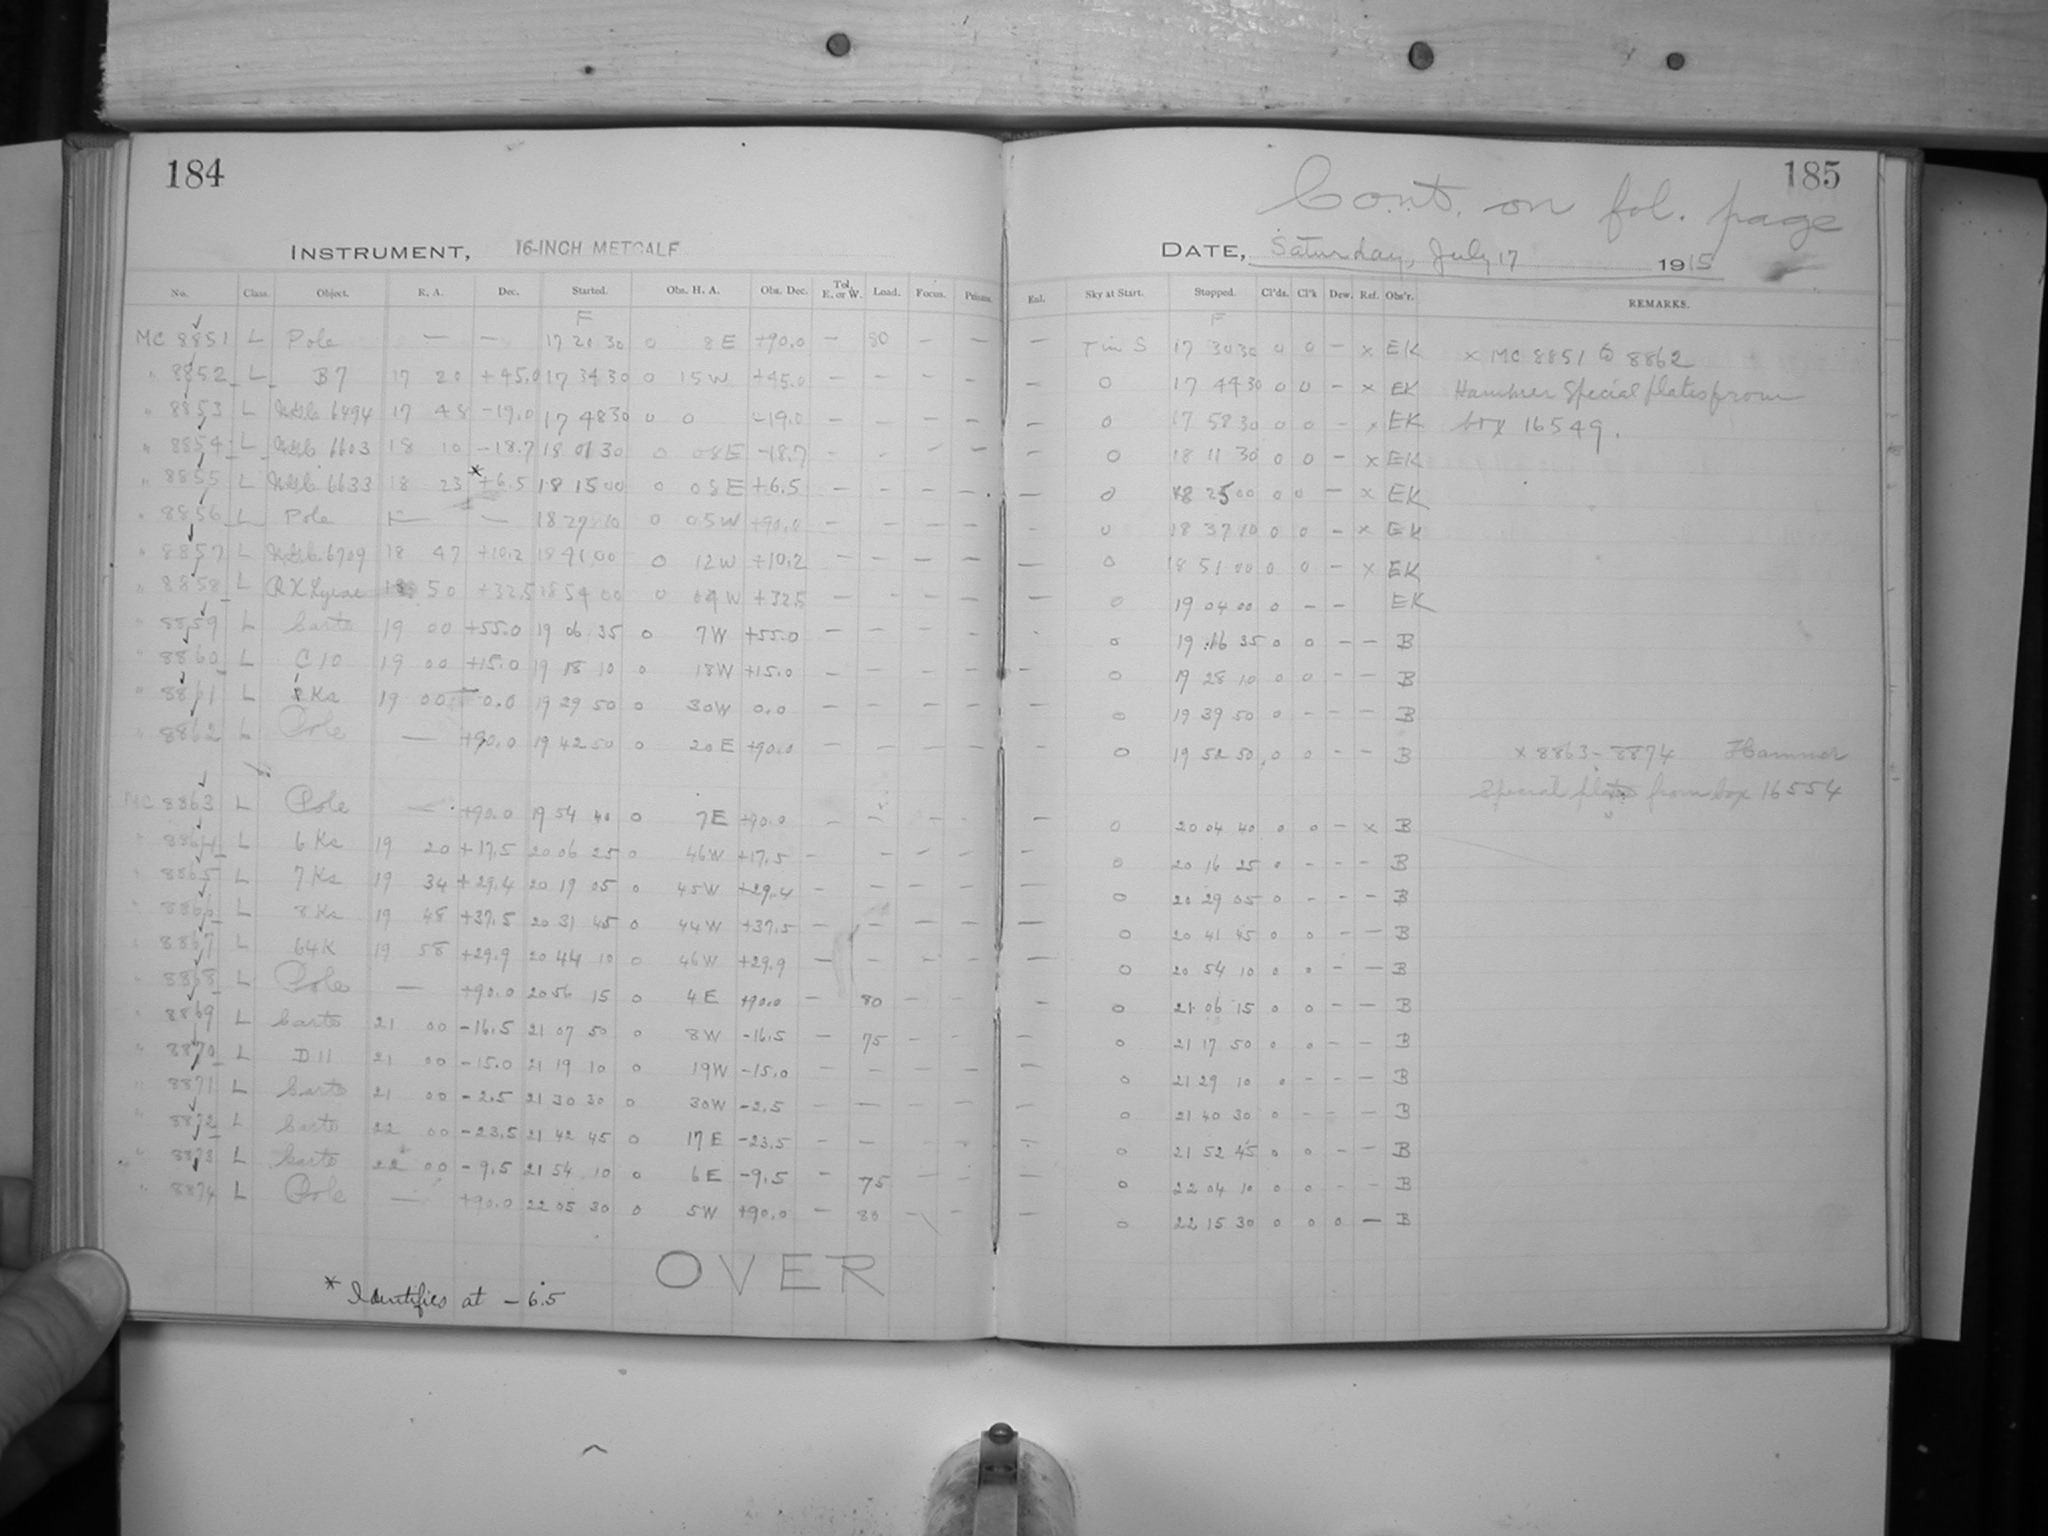 184
INSTRUMENT, 16-INCH METCALF
No. Class. Object. R. A. Dec. Started. Obs. H. A. Obs. Dec. Tel. E. or W. Load. Focus. Prisms.
F
MC 8851 L Pole — — 17 20 30 0 8 E +90.0 — 80 — —
" 8852 L B 7 17 20 +45.0 17 34 30 0 15 W +45.0 — — — —
" 8853 L N.G.C. 6494 17 48 -19.0 17 48 30 0 0 -19.0 — — — —
" 8854 L N.G.C. 6603 18 10 -18.7 18 01 30 0 08 E -18.7 - - - -
" 8855 L N.G.C. 6633 18 23 * +6.5 18 15 00 0 08 E +6.5 — — — —
" 8856 L Pole — — 18 27 10 0 05 W +90.0 — — — —
" 8857 L N.G.C. 6709 18 47 +10.2 18 41 00 0 12 W +10.2 — — — —
" 8858 L RX Lyrae 18 50 +32.5 18 54 00 0 04 W +32.5 — — — —
" 8859 L Carte 19 00 +55.0 19 06 35 0 7 W +55.0 — — — —
" 8860 L C 10 19 00 +15.0 19 18 10 0 18 W +15.0 — — — —
" 8861 L Ks 19 00 0.0 19 29 50 0 30 W 0.0 — — — —
" 8862 L Pole — +90.0 19 42 50 0 20 E +90.0 — — — —
MC 8863 L Pole — +90.0 19 54 40 0 7 E +90.0 — — — —
" 8864 L 6 Ks 19 20 +17.5 20 06 25 0 46 W +17.5 — — — —
" 8865 L 7 Ks 19 34 +29.4 20 19 05 0 45 W +29.4 — — — —
" 8866 L 8 Ks 19 48 +37.5 20 31 45 0 44 W +37.5 — — — —
" 8867 L 64 K 19 58 +29.9 20 44 10 0 46 W +29.9 — — — —
" 8868 L Pole — +90.0 20 56 15 0 4 E +90.0 — 80 — —
" 8869 L Carte 21 00 -16.5 21 07 50 0 8 W -16.5 — 75 — —
" 8870 L D 11 21 00 -15.0 21 19 10 0 19 W -15.0 — — — —
" 8871 L Carte 21 00 -2.5 21 30 30 0 30 W -2.5 — — — —
" 8872 L Carte 22 00 -23.5 21 42 45 0 17 E -23.5 — — — —
" 8873 L Carte 22 00 -9.5 21 54 10 0 6 E -9.5 — 75 — —
" 8874 L Pole — +90.0 22 05 30 0 5 W +90.0 — 80 — —
OVER
* Identifies at -6.5
185
Cont. on fol. page
DATE, Saturday, July 17 1915
Enl. Sky at Start. Stopped. Cl'ds. Cl'k Dew. Ref. Obs'r. REMARKS.
F
— S 17 30 30 0 0 — x EK x MC 8851 to 8862
— 0 17 44 30 0 0 — x EK Hammer Special plates from
— 0 17 58 30 0 0 — x EK box 16549.
— 0 18 11 30 0 0 — x EK
— 0 18 25 00 0 0 — x EK
— 0 18 37 10 0 0 — x EK
— 0 18 51 00 0 0 — x EK
— 0 19 04 00 0 — — EK
- 0 19 16 35 0 0 — — B
— 0 19 28 10 0 0 — — B
— 0 19 39 50 0 — — — B
— 0 19 52 50 0 0 — — B x 8863-8874 Hammer
Special plates from box 16554
— 0 20 04 40 0 0 — x B
— 0 20 16 25 0 — — — B
— 0 20 29 05 0 — — — B
— 0 20 41 45 0 0 — — B
— 0 20 54 10 0 0 — — B
— 0 21 06 15 0 0 — — B
— 0 21 17 50 0 0 — — B
— 0 21 29 10 0 — — — B
— 0 21 40 30 0 — — — B
— 0 21 52 45 0 0 — — B
— 0 22 04 10 0 0 — — B
— 0 22 15 30 0 0 0 — B